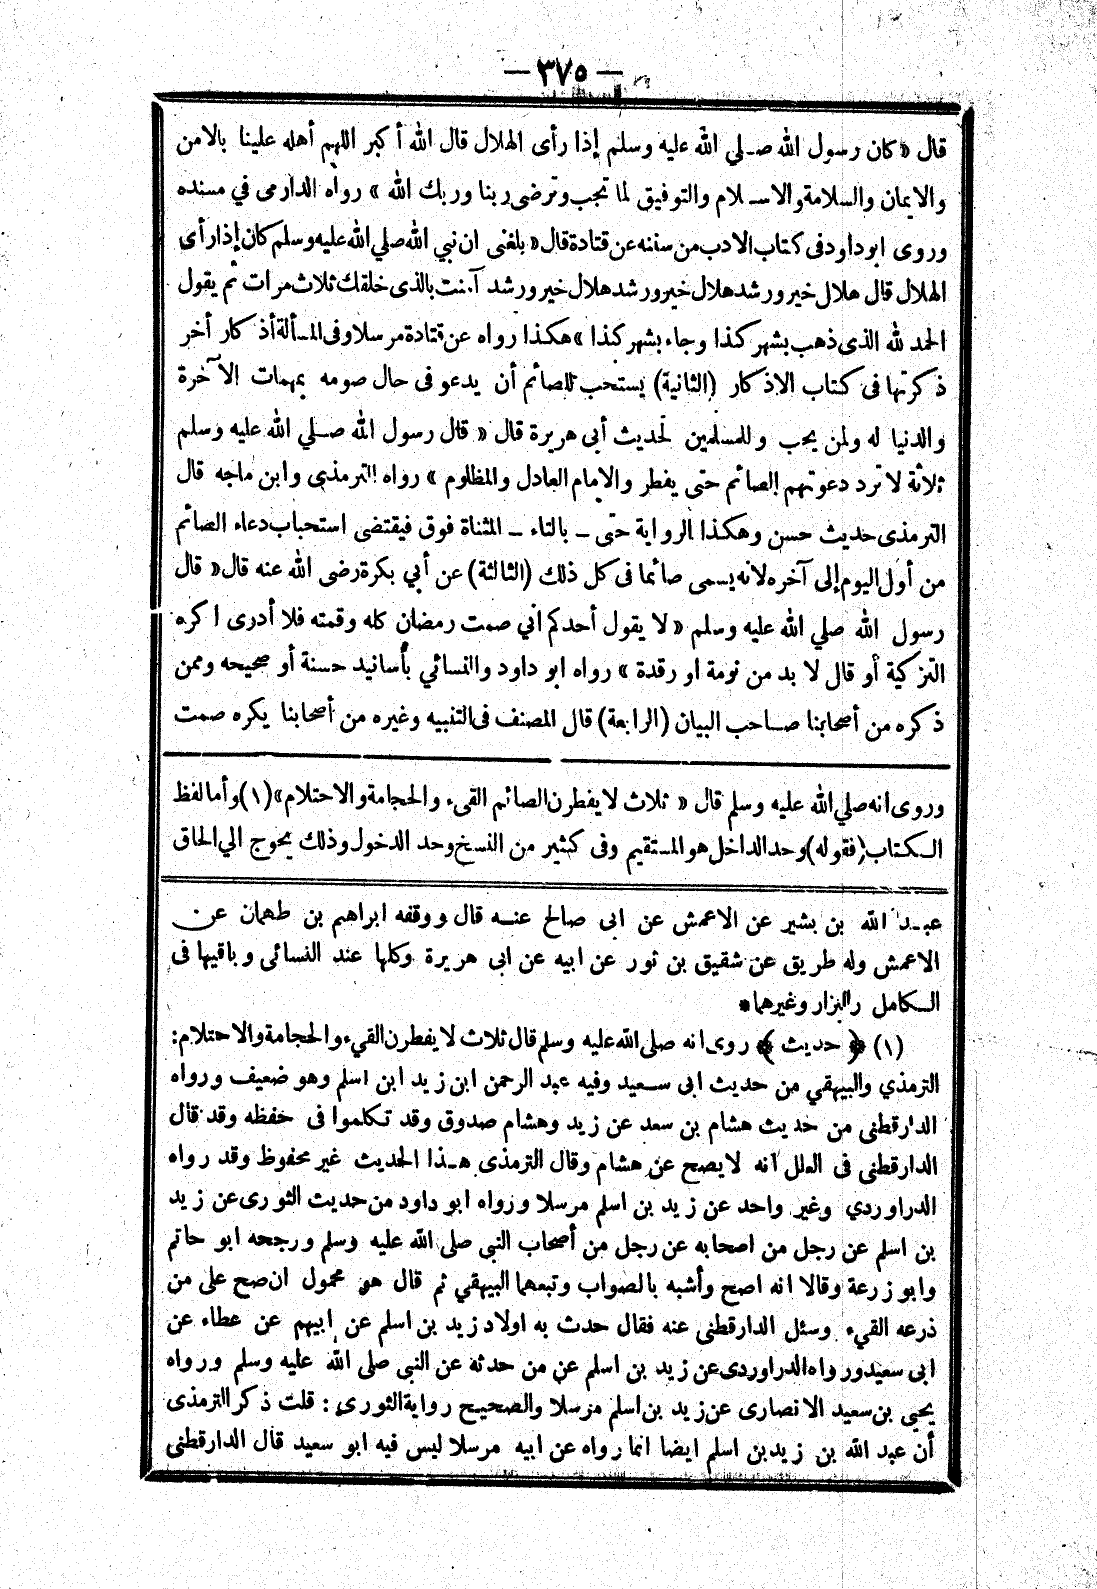 — ٣٧٥ —
قال « كان رسول الله صلي الله عليه وسلم إذا رأى الهلال قال الله أكبر اللهم أهله علينا بالامن
والايمان والسلامة والاسلام والتوفيق لما تحب وترضى ربنا وربك الله » رواه الدارمى في مسنده
وروى ابو داود فى كتاب الادب من سننه عن قتادة قال « بلغنى ان نبي الله صلي الله عليه وسلم كان إذا رأى
الهلال قال هلال خير ورشد هلال خير ورشد هلال خير ورشد آمنت بالذى خلقك ثلاث مرات ثم يقول
الحمد لله الذى ذهب بشهر كذا وجاء بشهر كذا » هكذا رواه عن قتادة مرسلا وفى المسألة أذكار أخر
ذكرتها فى كتاب الاذكار (الثانية) يستحب للصائم أن يدعو فى حال صومه بمهمات الآخرة
والدنيا له ولمن يحب وللمسلمين لحديث أبى هريرة قال « قال رسول الله صلي الله عليه وسلم
ثلاثة لا ترد دعوتهم الصائم حتى يفطر والامام العادل والمظلوم » رواه الترمذى وابن ماجه قال
الترمذى حديث حسن وهكذا الرواية حتى – بالتاء – المثناة فوق فيقتضى استحباب دعاء الصائم
من أول اليوم إلى آخره لانه يسمى صائما فى كل ذلك (الثالثة) عن أبي بكرة رضى الله عنه قال « قال
رسول الله صلي الله عليه وسلم « لا يقول أحدكم اني صمت رمضان كله وقمته فلا أدرى اكره
التزكية أو قال لا بد من نومة او رقدة » رواه ابو داود والنسائي بأسانيد حسنة أو صحيحه وممن
ذكره من أصحابنا صاحب البيان (الرابعة) قال المصنف فى التنبيه وغيره من أصحابنا يكره صمت
وروى انه صلي الله عليه وسلم قال « ثلاث لا يفطرن الصائم القىء والحجامة والاحتلام» (١) وأما لفظ
الكتاب (فقوله) وحد الداخل هو المستقيم وفى كثير من النسخ وحد الدخول وذلك يحوج الي الحاق
عبد الله بن بشير عن الاعمش عن ابى صالح عنه قال ووقفه ابراهيم بن طهمان عن
الاعمش وله طريق عن شقيق بن ثور عن ابيه عن ابى هريرة وكلها عند النسائى وباقيها فى
الكامل والبزار وغيرهما *
(١) ﴿ حديث ﴾ روى انه صلى الله عليه وسلم قال ثلاث لا يفطرن القيء والحجامة والاحتلام :
الترمذي والبيهقي من حديث ابى سعيد وفيه عبد الرحمن ابن زيد ابن اسلم وهو ضعيف ورواه
الدارقطنى من حديث هشام بن سعد عن زيد وهشام صدوق وقد تكلموا فى حفظه وقد قال
الدارقطنى فى العلل انه لا يصح عن هشام وقال الترمذى هذا الحديث غير محفوظ وقد رواه
الدراوردي وغير واحد عن زيد بن اسلم مرسلا ورواه ابو داود من حديث الثورى عن زيد
بن اسلم عن رجل من اصحابه عن رجل من أصحاب النبى صلى الله عليه وسلم ورجحه ابو حاتم
وابو زرعة وقالا انه اصح وأشبه بالصواب وتبعهما البيهقي ثم قال هو محمول ان صح على من
ذرعه القيء وسئل الدارقطنى عنه فقال حدث به اولاد زيد بن اسلم عن ابيهم عن عطاء عن
ابى سعيد ورواه الدراوردى عن زيد بن اسلم عن من حدثه عن النبى صلى الله عليه وسلم ورواه
يحيي بن سعيد الانصارى عن زيد بن اسلم مرسلا والصحيح رواية الثورى : قلت ذكر الترمذى
أن عبد الله بن زيد بن اسلم ايضا انما رواه عن ابيه مرسلا ليس فيه ابو سعيد قال الدارقطنى